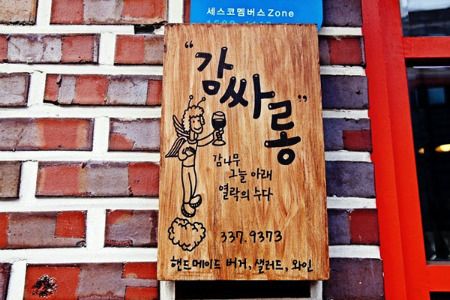 세스코멤버스Zone
"감싸롱"
감나무
그늘 아래
열락의 수다
337.9373
핸드메이드 버거, 샐러드, 와인